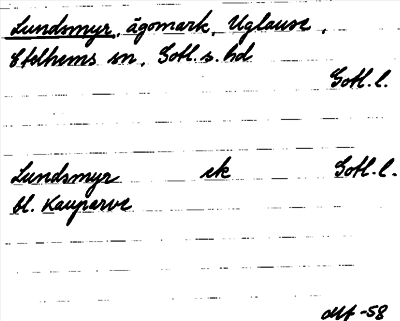 Lundsmyr, ägomark, Uglause,
Etelhems sn, Gotl. s. hd
Gotl. l.
Lundsmyr ek Gotl. l.
bl. Kauparve
-58